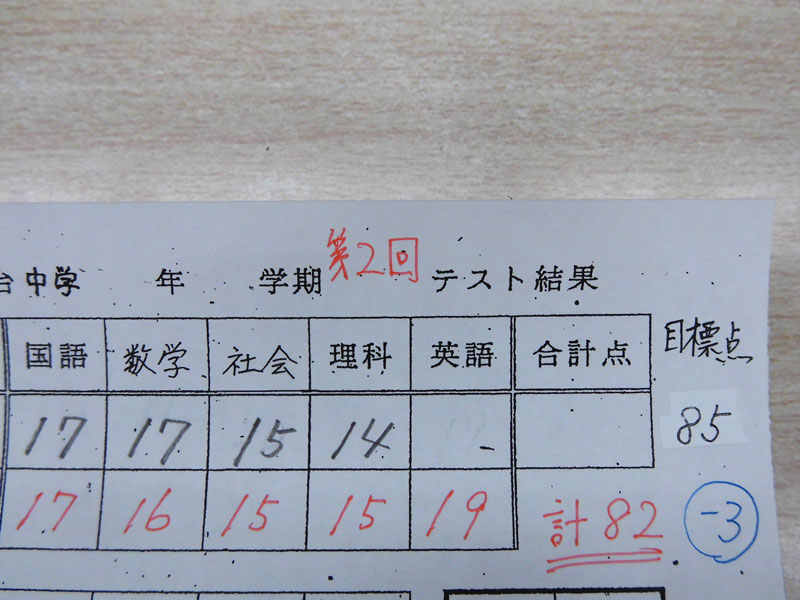 台中学 年 学期 第2回 テスト結果
国語 数学 社会 理科 英語 合計点 目標点
17 17 15 14 - 85
17 16 15 15 19 計82 -3